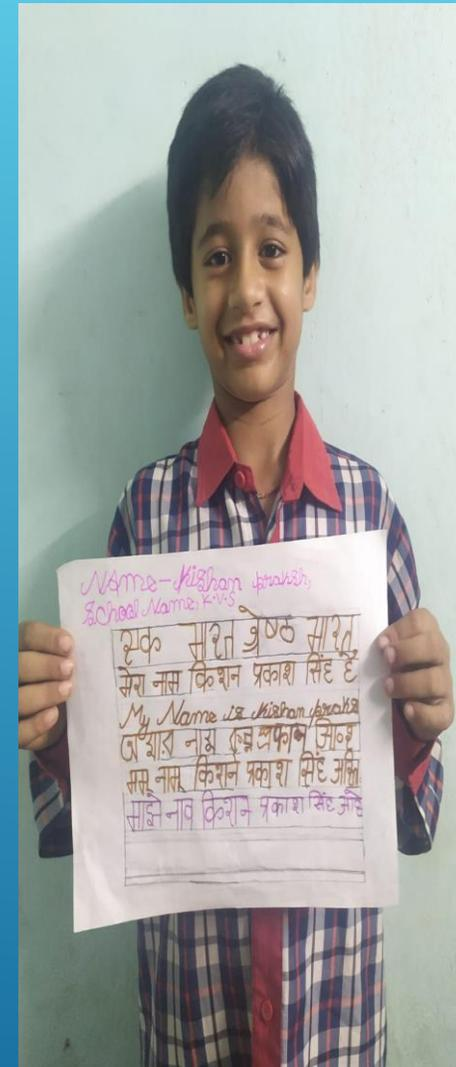 Name - Kishan prakash,
School Name, K.V.S
एक भारत श्रेष्ठ भारत
मेरा नाम किशन प्रकाश सिंह है
My Name is Kishan prakash
নাম
मम् नाम् किशन प्रकाश सिंह अस्ति
माझे नाव किशन प्रकाश सिंह आहे